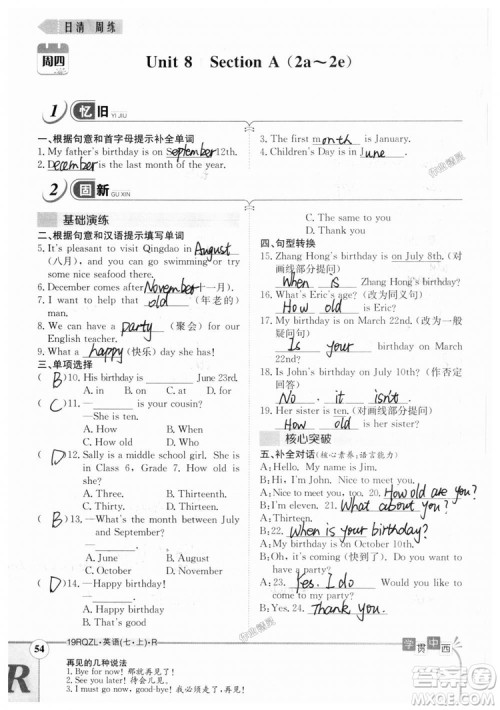 日清 周练
周四
Unit 8 Section A (2a～2e)
1 忆旧 YI JIU
一、根据句意和首字母提示补全单词
1. My father's birthday is on September 12th.
2. December is the last month of the year.
3. The first month is January.
4. Children's Day is in June.
2 固新 GU XIN
基础演练
二、根据句意和汉语提示填写单词
5. It's pleasant to visit Qingdao in August
(八月), and you can go swimming or try
nice seafood there.
6. December comes after November(十一月).
7. I want to help that old (年老的)
man.
8. We can have a party (聚会) for our
English teacher.
9. What a happy (快乐) day she has!
三、单项选择
( B )10. His birthday is ____ June 23rd.
A. in B. on C. at D. /
( C )11. —____ is your cousin?
—She is ten.
A. How B. When
C. How old D. Who
( D )12. Sally is a middle school girl. She is
in Class 6, Grade 7. How old is
she?
A. Three. B. Thirteenth.
C. Thirty. D. Thirteen.
( B )13. —What's the month between July
and September?
—____.
A. June B. August
C. October D. November
( D )14. —Happy birthday!
—____!
A. Happy birthday
B. I'm OK
C. The same to you
D. Thank you
四、句型转换
15. Zhang Hong's birthday is on July 8th. (对
画线部分提问)
When is Zhang Hong's birthday?
16. What's Eric's age? (改为同义句)
How old is Eric?
17. My birthday is on March 22nd. (改为一般
疑问句)
Is your birthday on March
22nd?
18. Is John's birthday in October? (作否定
回答)
No, it isn't.
19. Her sister is ten. (对画线部分提问)
How old is her sister?
核心突破
五、补全对话 (核心素养:语言能力)
A: Hello. My name is Jim.
B: Hi, Jim. I'm John. Nice to meet you.
A: Nice to meet you, too. 20. How old are you?
B: I'm eleven. 21. What about you?
A: Thirteen.
B: 22. When is your birthday?
A: My birthday is on October 10th.
B: Oh, it's coming (快到了). Do you want to
have a party?
A: 23. Yes. I do. Please come and
have a party with us.
54
19RQZL·英语(七·上)·R
学贯中西
再见的几种说法
1. Bye for now! 再见!
2. Bye bye! 再见!
3. I must go now, good-bye! 我得走了,再见!
R